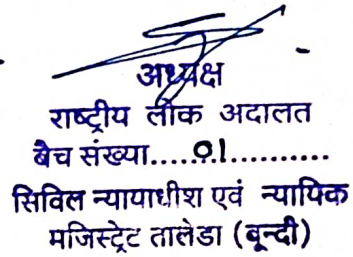 अध्यक्ष
राष्ट्रीय लोक अदालत
बैच संख्या.....01...........
सिविल न्यायाधीश एवं न्यायिक
मजिस्ट्रेट तालेडा (बून्दी)